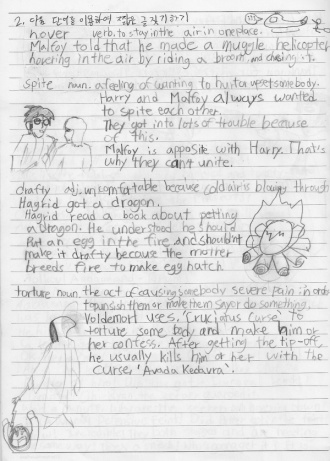 2. 다음 단어를 이용하여 짧은 글 짓기 하기
hover verb. to stay in the air in one place.
Malfoy told that he made a muggle helicopter
hovering in the air by riding a broom and chasing it.
spite noun. a feeling of wanting to hurt or upset somebody.
Harry and Malfoy always wanted
to spite each other.
They got into lots of trouble because
of this.
Malfoy is apposite with Harry. That's
why they can't unite.
drafty adj. uncomfortable because cold air is blowing through
Hagrid got a dragon.
Hagrid read a book about petting
a dragon. He understood he should
put an egg in the fire and shouldn't
make it drafty because the mother
breeds fire to make egg hatch
torture noun. the act of causing somebody severe pain in order
to punish them or make them say or do something.
Voldemort uses, 'Cruciatus Curse' to
torture some body and make him or
her confess. After getting the tip-off,
he usually kills him or her with the
curse, 'Avada Kedavra'.